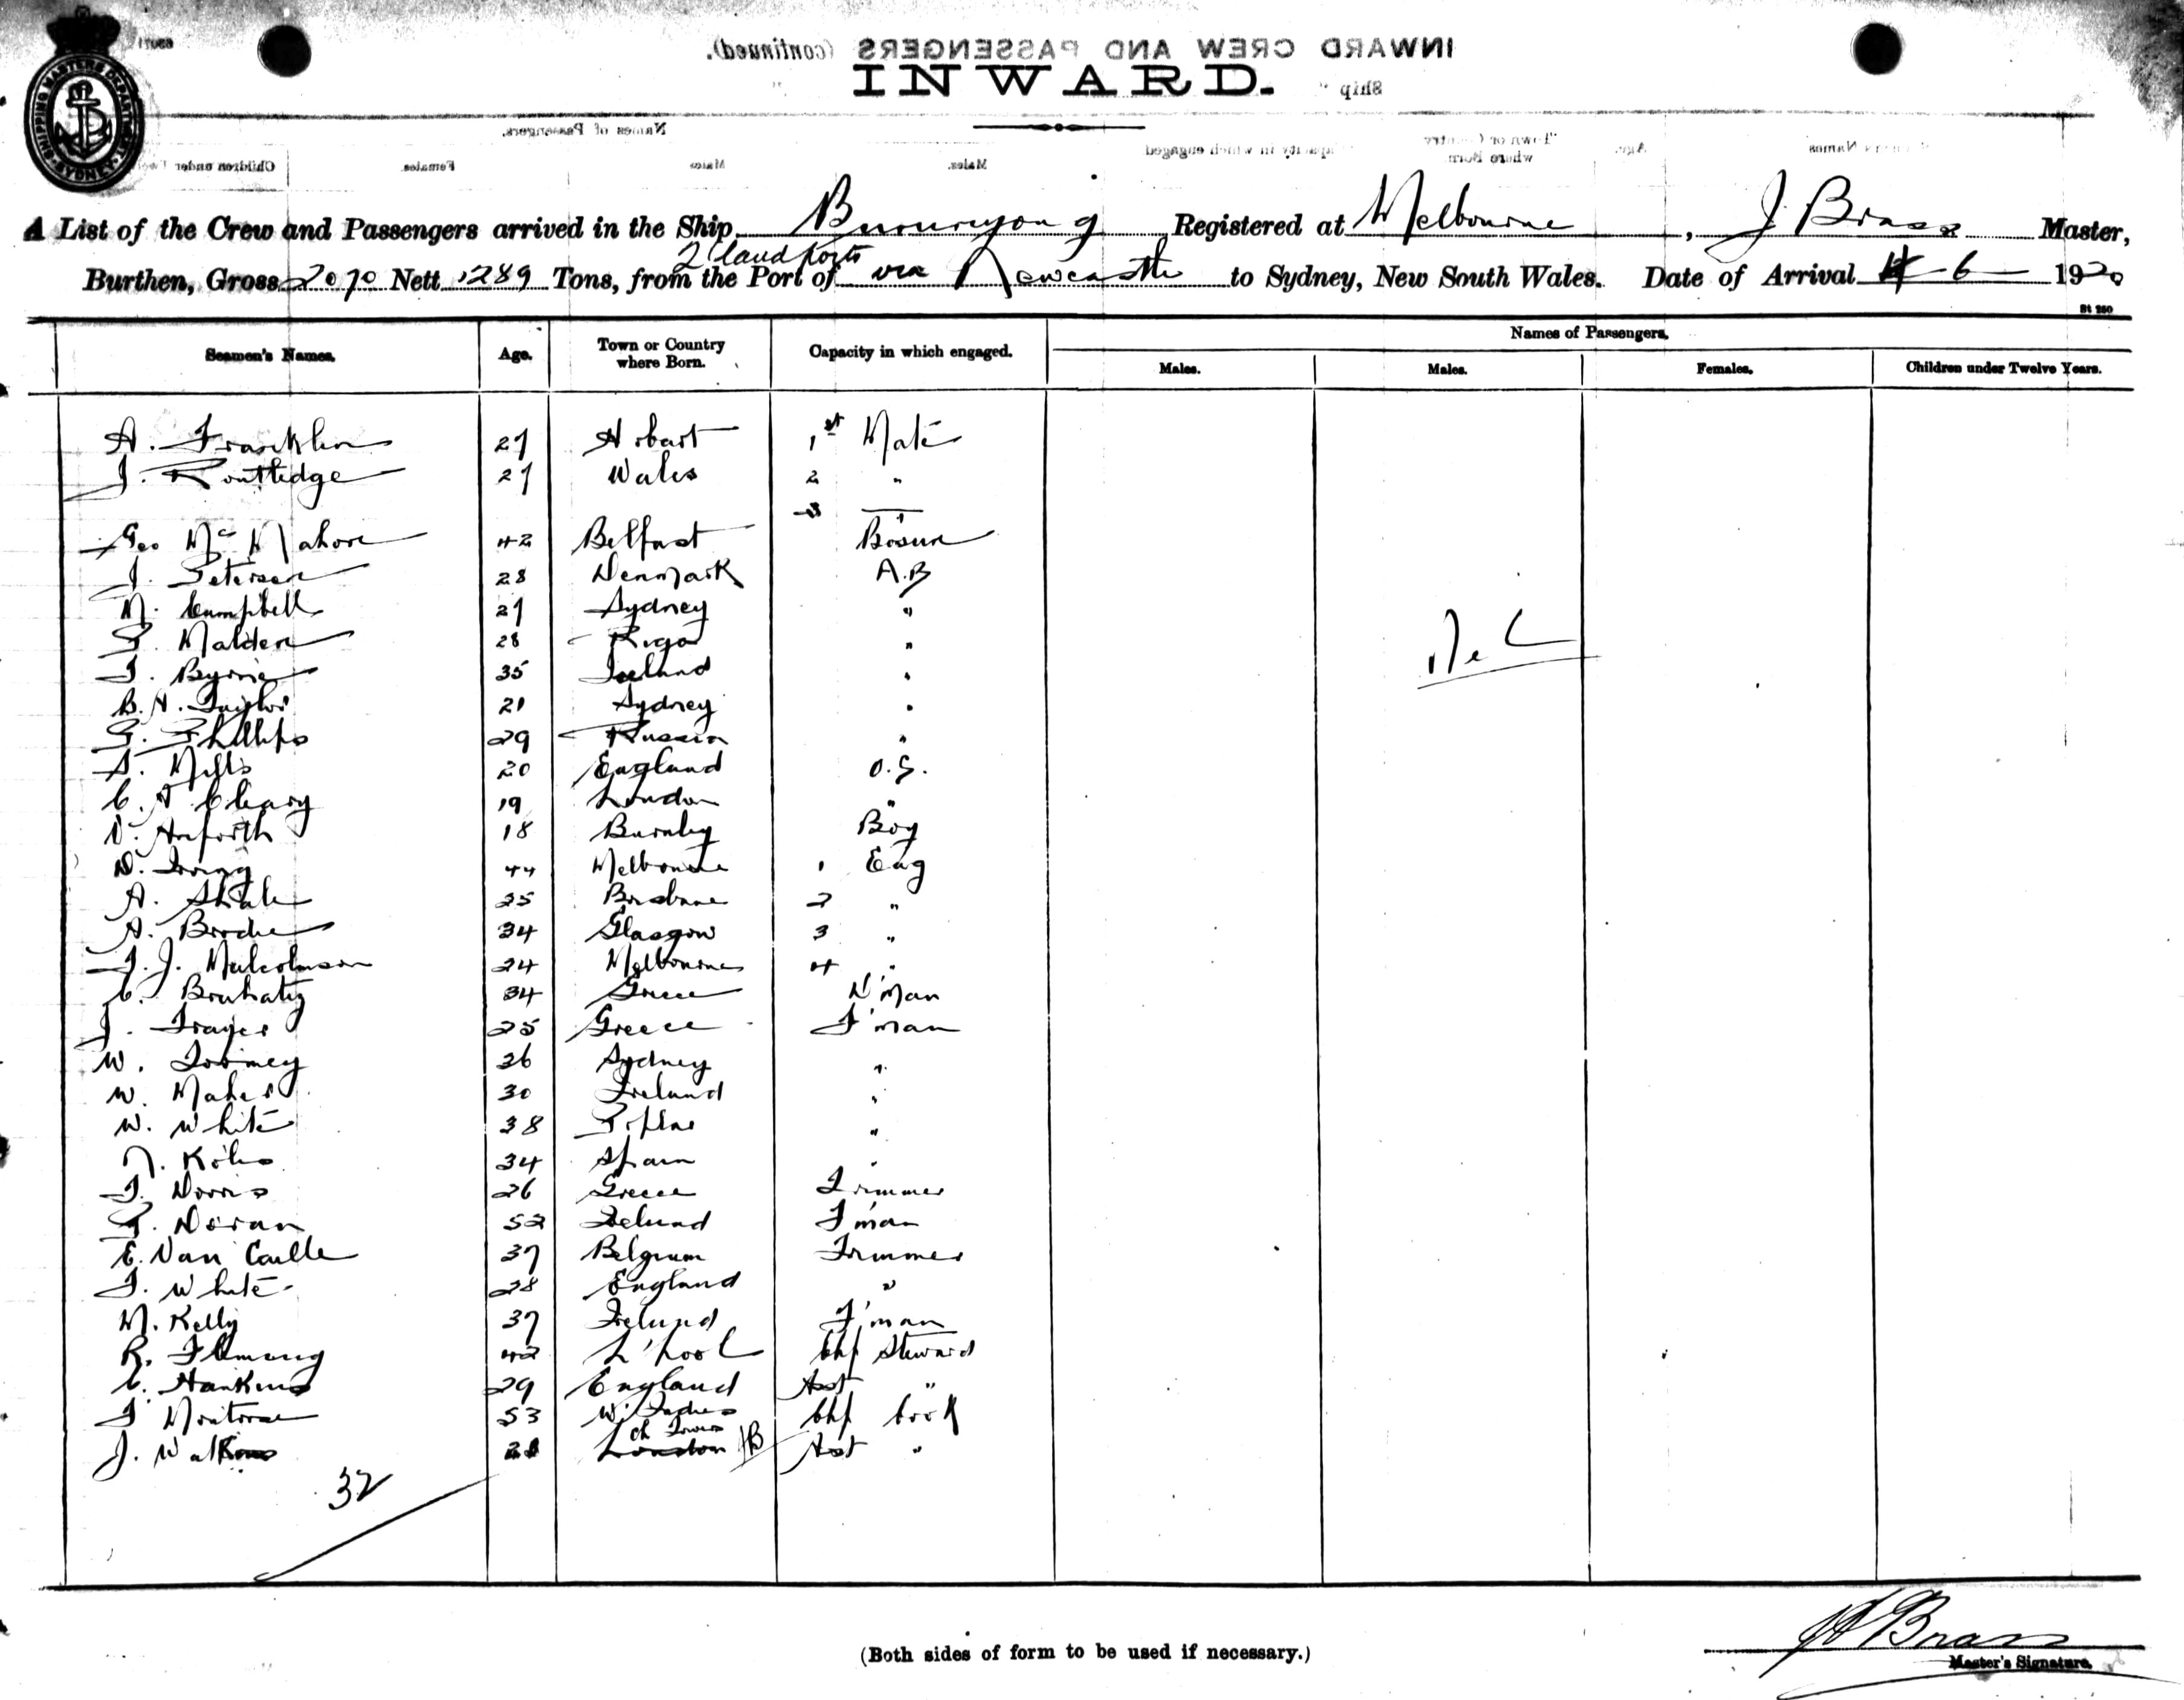 INWARD CREW AND PASSENGERS (continued).
INWARD.
Ship "
Names of Passengers.
Town or Country where Born
Capacity in which engaged
Age.
Names
Children under
Females.
Males
Males.
SHIPPING MASTERS DEPARTMENT SYDNEY
A List of the Crew and Passengers arrived in the Ship Buninyong Registered at Melbourne, J Brass Master,
Burthen, Gross 2070 Nett 1289 Tons, from the Port of Q'land ports via Newcastle to Sydney, New South Wales. Date of Arrival 6 1920
St 250
Seamen's Names. Age. Town or Country where Born. Capacity in which engaged. Names of Passengers.
Males. Males. Females. Children under Twelve Years.
A. Franklin 27 Hobart 1st Mate
J. Routledge 27 Wales 2 "
3
Geo McMahon 42 Belfast Bosun
J. Petersen 28 Denmark A.B
M. Campbell 27 Sydney "
P. Malden 28 Riga "
J. Byrne 35 Ireland "
B. H. Taylor 21 Sydney "
G. Phillips 29 Russia "
A. Mills 20 England O.S.
C. J Cleary 19 London "
D. Anforth 18 Burnley Boy
D. Irving 44 Melbourne 1 Eng
A. 35 Brisbane 2 "
A. Brodie 34 Glasgow 3 "
J. J. Malcolmson 24 Melbourne 4 "
C. 34 Greece D'man
J. 25 Greece F'man
W. Toomey 36 Sydney "
W. Maher 30 Ireland "
W. White 38 "
34 Spain "
J. Norris 26 Greece Trimmer
P. Doran 52 Ireland F'man
E. Van Caille 37 Belgium Trimmer
J. White 28 England "
M. Kelly 37 Ireland F'man
R. Fleming 42 L'pool Chf Steward
C. Hankins 29 England Asst "
J 53 W. Indies Chf Cook
J. Watkins London JB Asst "
32
(Both sides of form to be used if necessary.)
J Brass
Master's Signature.